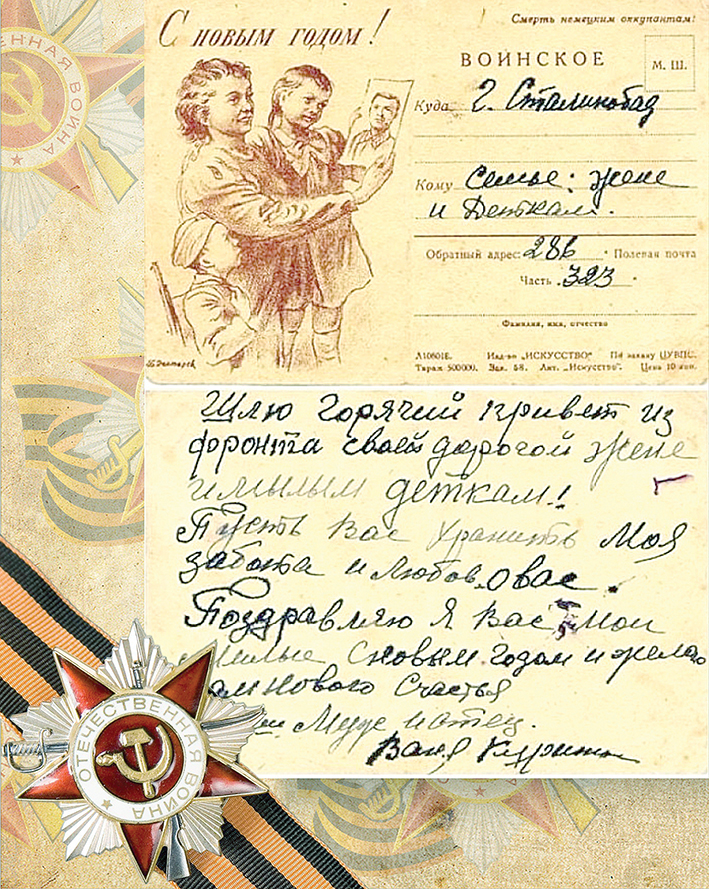 С НОВЫМ ГОДОМ!
Смерть немецким оккупантам!
ВОИНСКОЕ
М. Ш.
Куда г. Сталинобад
Кому семье: жене
и Деткам.
Обратный адрес: 286 Полевая почта
Часть 323
Фамилия, имя, отчество
Изд-во „ИСКУССТВО" По заказу ЦУВПС.
Тираж 500000. Зак. 68. Лит. „Искусство". Цена 10 коп.
Шлю горячий привет из
фронта своей дорогой жене
и милым деткам!
Пусть Вас хранить Моя
забота и любов о вас.
Поздравляю я Вас Мои
милые с новым годом и желаю
вам нового счастья
Муж и отец.
Ваня
ОТЕЧЕСТВЕННАЯ ВОЙНА
ЕННАЯ ВОЙНА